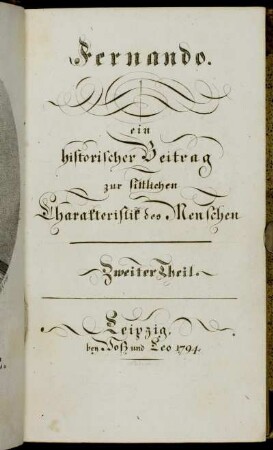 Fernando.
ein
historischer Beitrag
zur sittlichen
Charakteristik des Menschen
Zweiter Theil.
Leipzig,
bey Voß und Leo 1794.